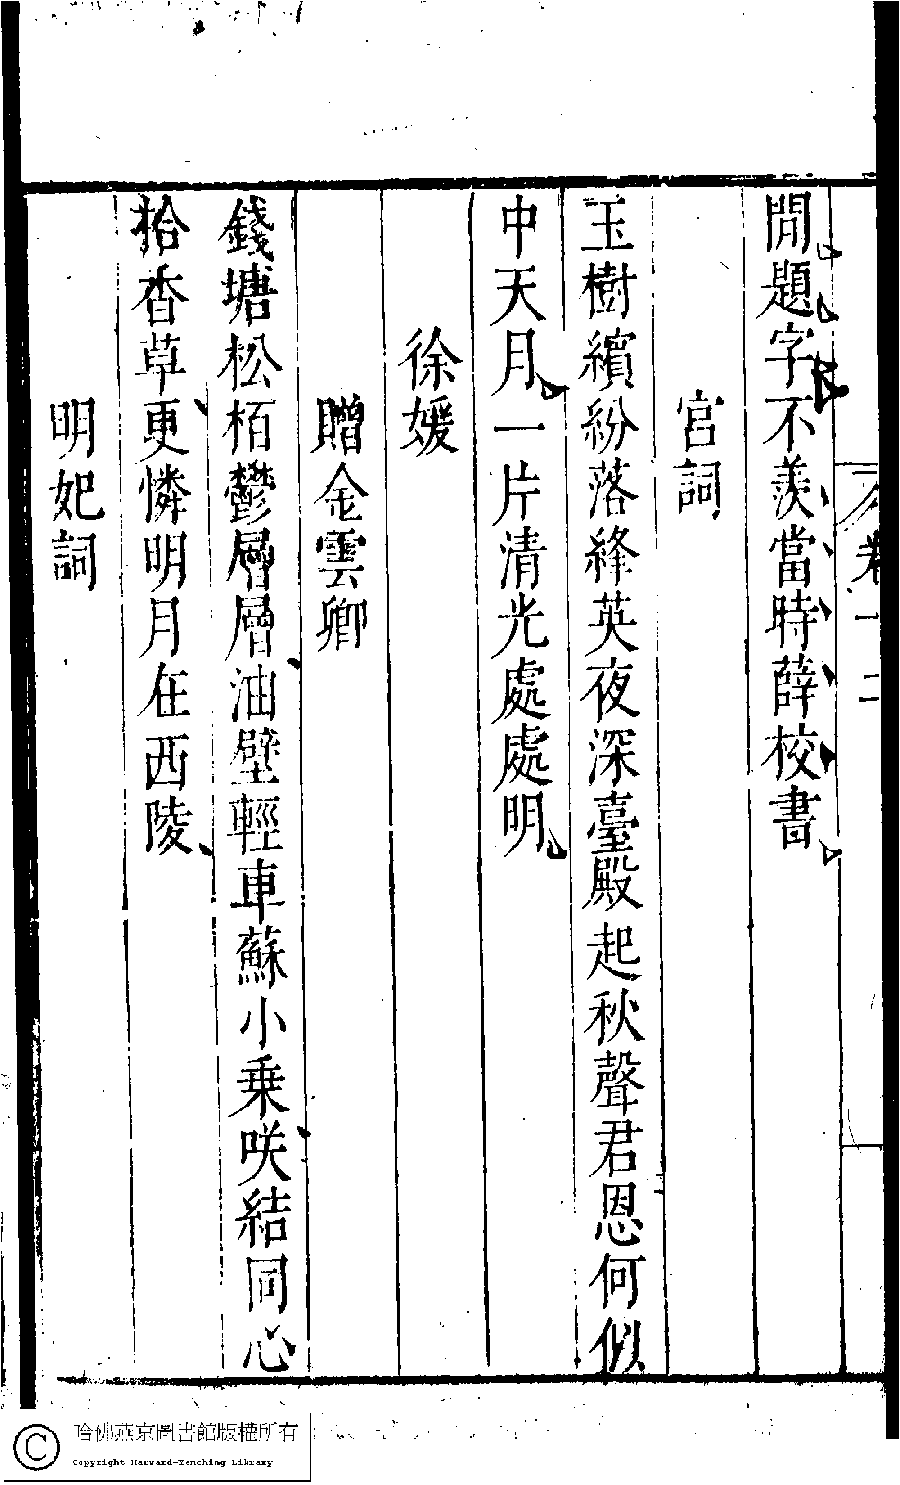 卷十二
閒題字不羨當時薛校書
宮詞
玉樹繽紛落絳英夜深臺殿起秋聲君恩何似
中天月一片清光處處明
徐媛
贈金雲卿
錢塘松栢鬱層層油壁輕車蘇小乗咲結同心
拾香草更憐明月在西陵
明妃詞
哈佛燕京圖書館版權所有
Copyright Harvard-Yenching Library